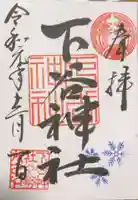 奉拝
下谷神社
令和元年十二月一日